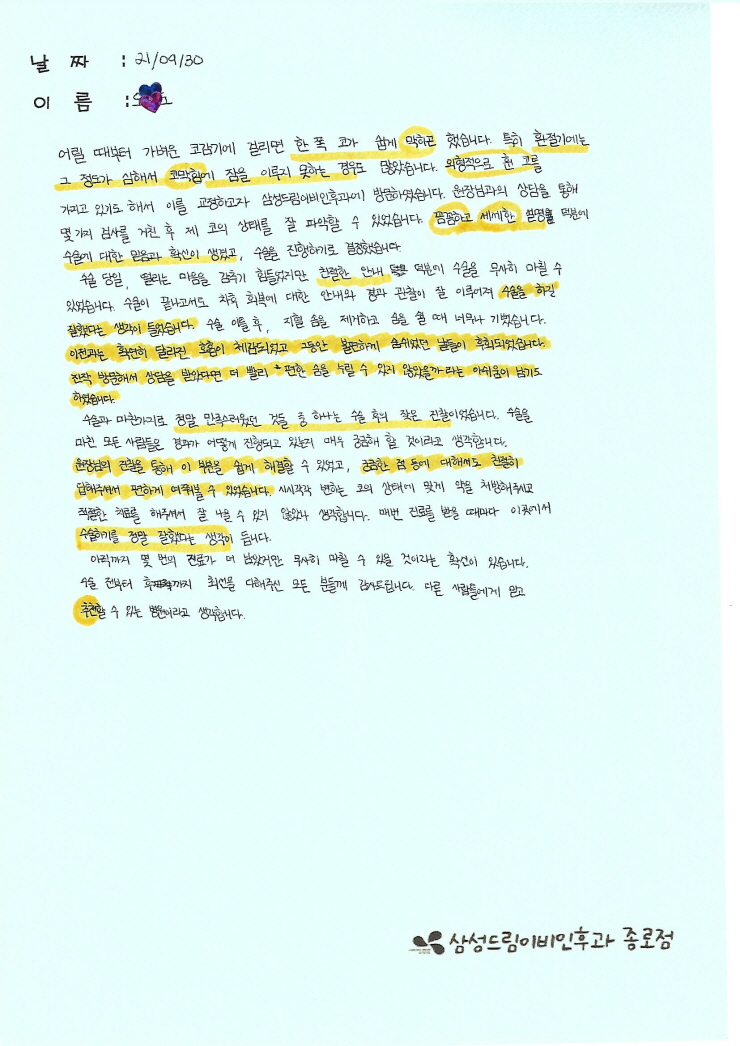 날 짜 : 21/09/30
이 름 :
어릴 때부터 가벼운 코감기에 걸리면 한 쪽 코가 쉽게 막히곤 했습니다. 특히 환절기에는
그 정도가 심해서 코막힘에 잠을 이루지 못하는 경우도 많았습니다. 외형적으로 휜 코를
가지고 있기도 해서 이를 교정하고자 삼성드림이비인후과에 방문하였습니다. 원장님과의 상담을 통해
몇가지 검사를 거친 후 제 코의 상태를 잘 파악할 수 있었습니다. 꼼꼼하고 세세한 설명을 덕분에
수술에 대한 믿음과 확신이 생겼고, 수술을 진행하기로 결정했습니다.
수술 당일, 떨리는 마음을 감추기 힘들었지만 친절한 안내 덕분에 수술을 무사히 마칠 수
있었습니다. 수술이 끝나고서도 차후 회복에 대한 안내와 경과 관찰이 잘 이루어져 수술을 하길
잘했다는 생각이 들었습니다. 수술 이틀 후, 지혈 솜을 제거하고 숨을 쉴 때 너무나 기뻤습니다.
이전과는 확연히 달라진 호흡이 체감되었고 그동안 불편하게 숨쉬었던 날들이 후회되었습니다.
진작 방문해서 상담을 받았다면 더 빨리 편한 숨을 누릴 수 있지 않았을까 라는 아쉬움이 남기도
하였습니다.
수술과 마찬가지로 정말 만족스러웠던 것들 중 하나는 수술 후의 잦은 진찰이었습니다. 수술을
마친 모든 사람들은 경과가 어떻게 진행되고 있는지 매우 궁금해 할 것이라고 생각합니다.
원장님의 진찰을 통해 이 부분을 쉽게 해결할 수 있었고, 궁금한 점 등에 대해서도 친절히
답해주셔서 편하게 여쭤볼 수 있었습니다. 시시각각 변하는 코의 상태에 맞게 약을 처방해주시고
적절한 치료를 해주셔서 잘 나을 수 있지 않았나 생각합니다. 매번 진료를 받을 때마다 이곳에서
수술하기를 정말 잘했다는 생각이 듭니다.
아직까지 몇 번의 진료가 더 남았지만 무사히 마칠 수 있을 것이라는 확신이 있습니다.
수술 전부터 후까지 최선을 다해주신 모든 분들께 감사드립니다. 다른 사람들에게 믿고
추천할 수 있는 병원이라고 생각합니다.
삼성드림이비인후과 종로점